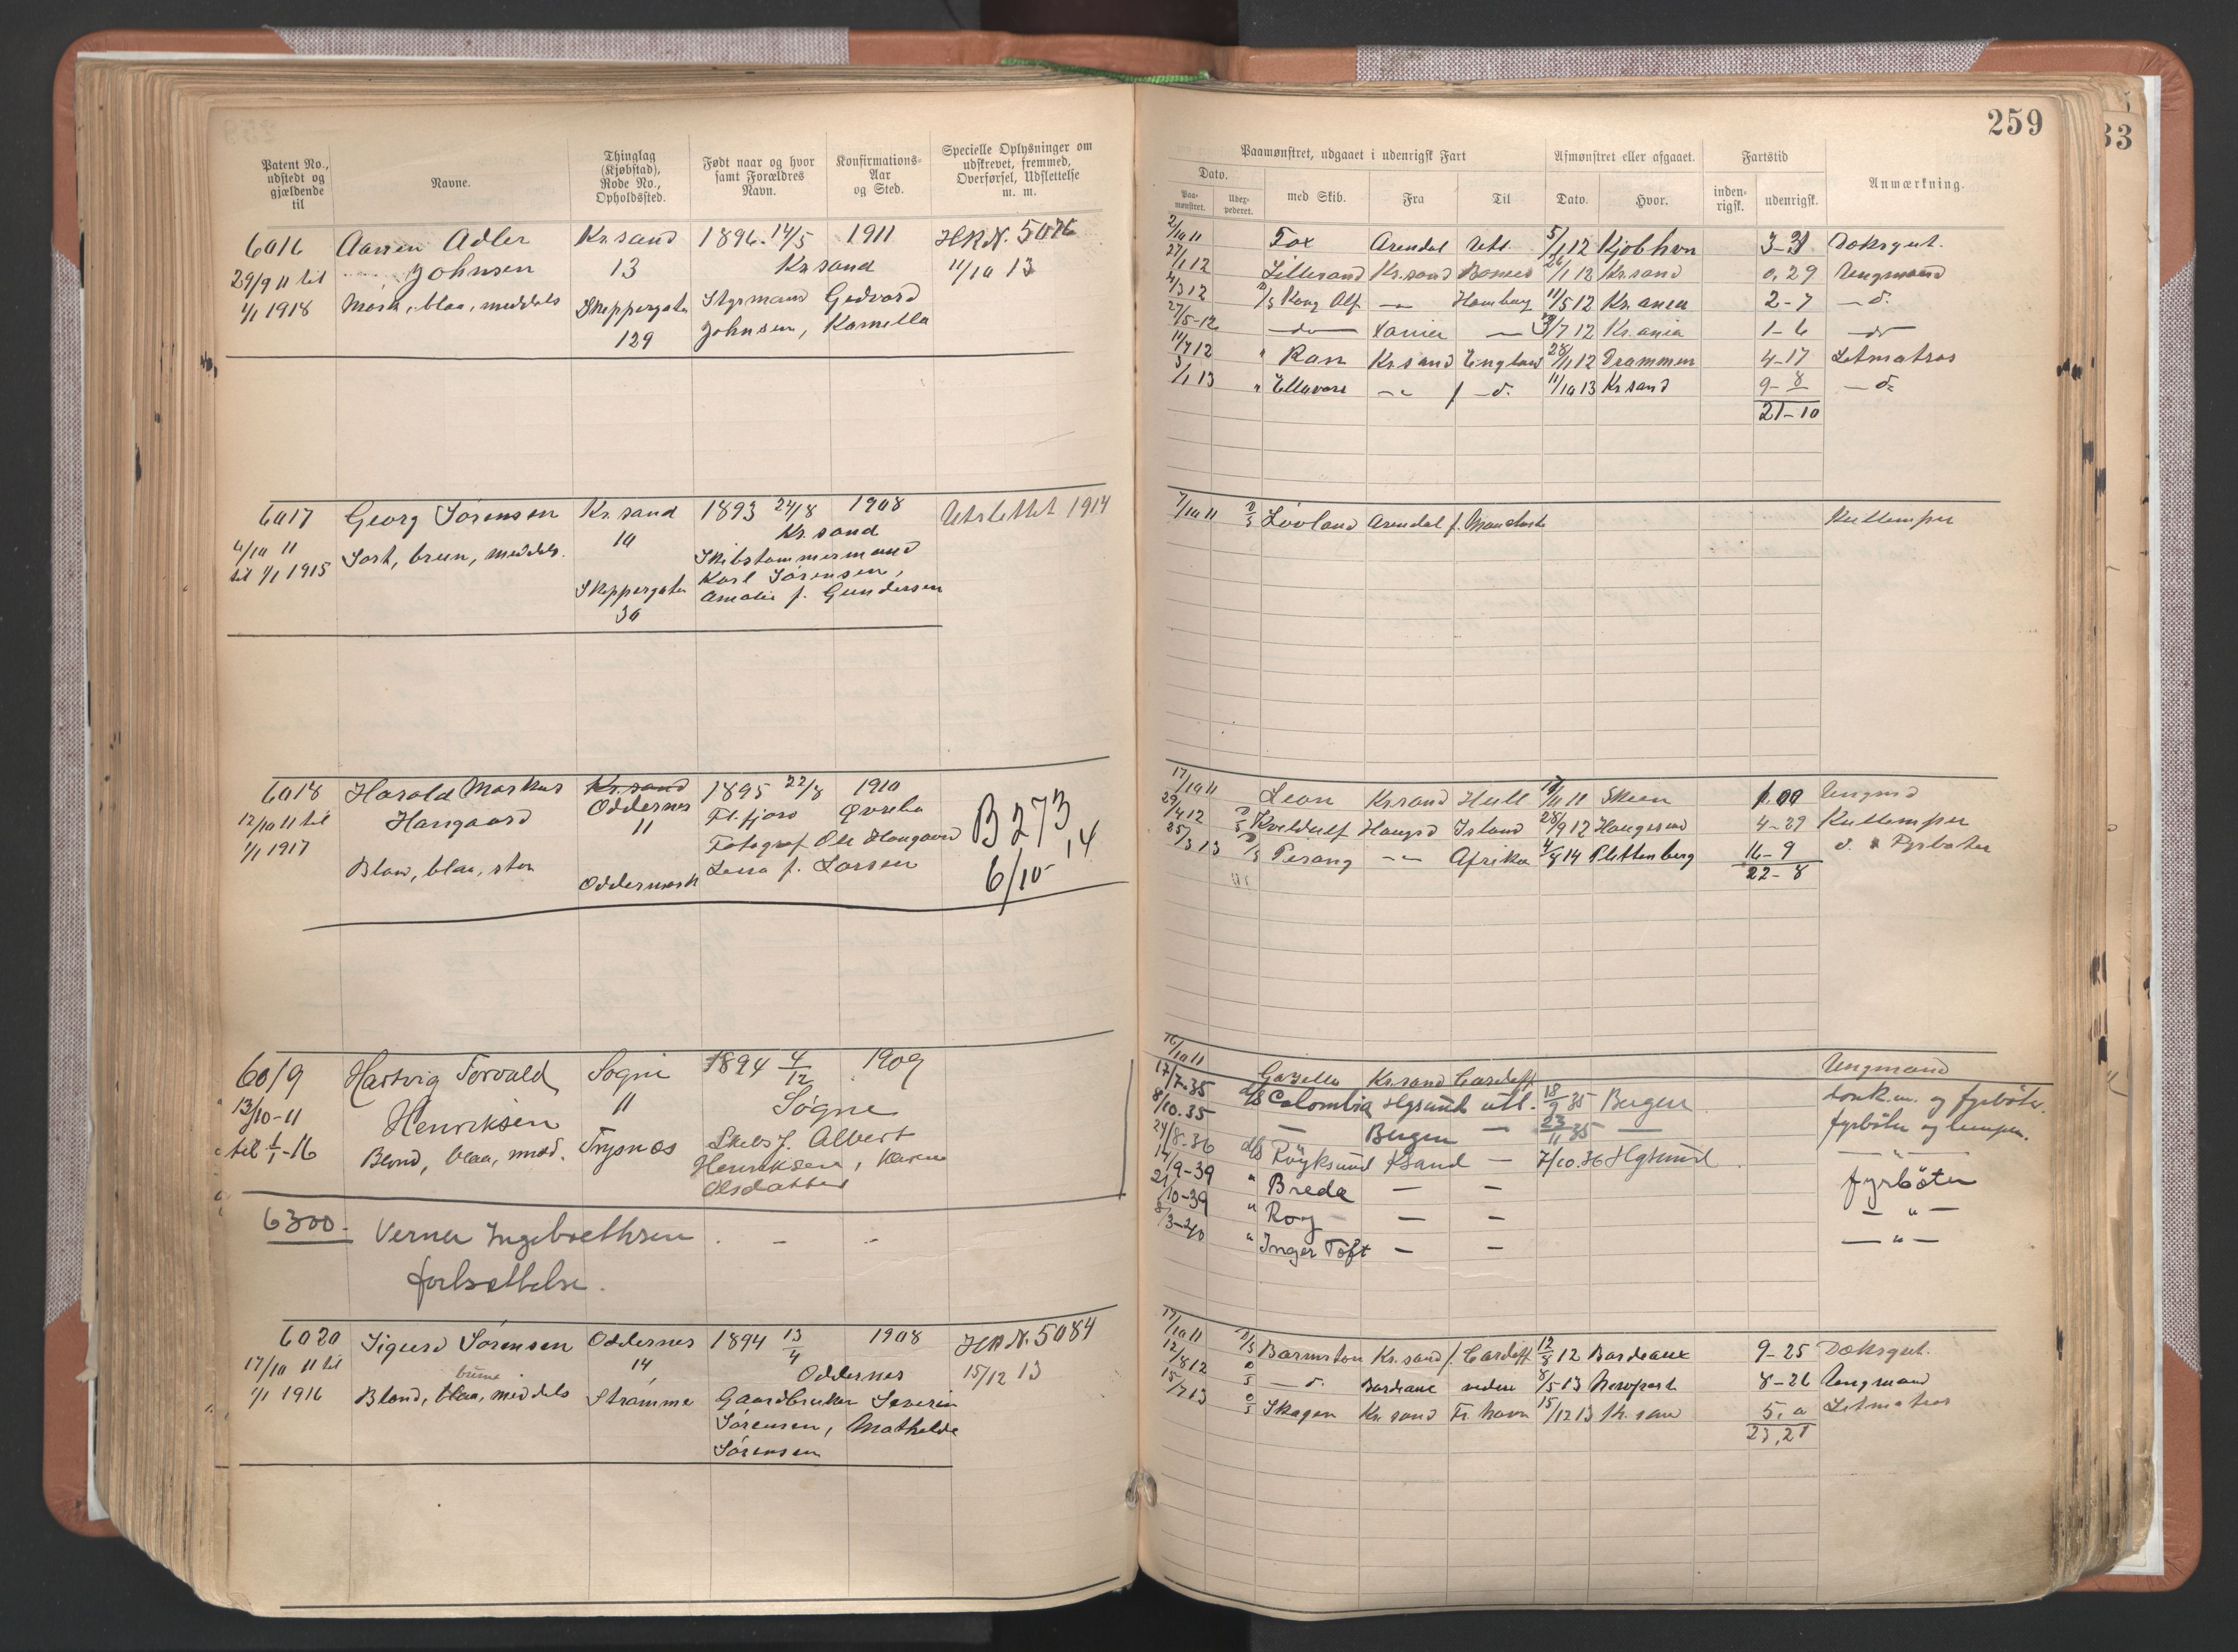 259
33
Patent No., udstedt og gjældende til
Navne.
Thinglag (Kjøbstad), Rode No., Opholdssted.
Født naar og hvor samt Forældres Navn.
Konfirmations-Aar og Sted.
Specielle Oplysninger om udskrevet, fremmed, Overførsel, Udslettelse m. m.
Paamønstret, udgaaet i udenrigsk Fart
Afmønstret eller afgaaet.
Fartstid
Anmærkning.
Dato.
Paa-mønstret.
Udex-pederet.
med Skib.
Fra
Til
Dato.
Hvor.
inden-rigsk.
udenrigsk.
6016 Aanen Adler Kr.sand 1896 14/5 1911 HR N. 5076
29/9 11 til Johnsen 13 Kr.sand 11/10 13
1/1 1918 Mørk, blaa, middels Skippergaten Styrmand Gedvard
129 Johnsen, Kamilla
2/10 11 Fox Arendal Utl. 5/1 12 Kjøbhvn Dæksgut.
27/1 12 Lillesand Kr.sand 26/ 12 Kr.sand 0.29 Ungmand
4/3 12 D/S Kong Alf — Hamburg 11/5 12 Kr.ania 2-7 — d.
27/5-12 — do — — /7 12 Kr.ania 1-6 — do
11/7 12 " Ran Kr.sand England 28/11 12 Drammen 4-17 Letmatros
3/1 13 " Ellavore — " — d. 11/10 13 Kr.sand 9-8 — d.
21-10
6017 Georg Sørensen Kr.sand 1893 24/8 1908 Utslettet 1914
4/10 11 10 Kr.sand
til 1/1 1915 Sort, brun, middels. Skibstømmermand
Skippergaten Karl Sørensen,
30 Amalie f. Gundersen
7/10 11 D/S Lovland Arendal f. Manchester Kullemper
6018 Harald Markus Kr.sand 1895 22/8 1910
12/10 11 til Haugaard Oddernes Fl.fjord Øvrebø
1/1 1917 11 Fotograf Ole Haugaard
Blond, blaa, stor Oddernes f. Larsen
B 273
14
6/10
17/10 11 Leon Kr.sand Hull 11 Skien 1.00 Ungmd
29/4 12 D/S Kveldulf Haugsd Island 28/9 12 Haugesund 4-29 Kullemper
25/3 13 D/S Pisang — " — Afrika 4/8 14 Plettenberg 16-9 d. Fyrbøter
22-8
6019 Hartvig Torvald Søgne 1894 4/12 1909
13/10-11 Henriksen 11 Søgne
til 1/1-16 Blond, blaa, mid. Trysnæs Skibsf. Albert
Henriksen, Karen
Olsdatter
16/10 11 Gazelle Kr.sand Cardiff Ungmand
17/7-35 d/s Colombia Hgsund utl. 18/9 35 Bergen donk.m. og fyrbøter.
8/10.35 — Bergen — 23/11 35 — fyrbøter og lemper.
24/8-36 d/s Røyksund Ksand — 7/10.36 Hgsund — " —
14/9-39 " Breda — — fyrbøter
21/10-39 " Roy — — — " —
8/3-40 " Inger Toft — — — " —
6300. Verner Ingebrethsen . — —
fortsettelse.
6020 Sigurd Sørensen Oddernes 1894 13/4 1908 HR N. 5084
17/10 11 til brune 14 Oddernes 15/12 13
1/1 1916 Blond, blaa, middels Strømme Gaardbruker Severin
Sørensen, Mathilde
Sørensen
17/10 11 D/S Barmston Kr.sand f. Cardiff 12/8 12 Bordeaux 9-25 Dæksgut.
12/8 12 D/S — d. Bordeaux videre 8/5 13 Newport 8-26 Ungmand
15/7 13 D/S Skagen Kr.sand Fr.havn 15/12 13 Kr.sand 5.0 Letmatros
23,21